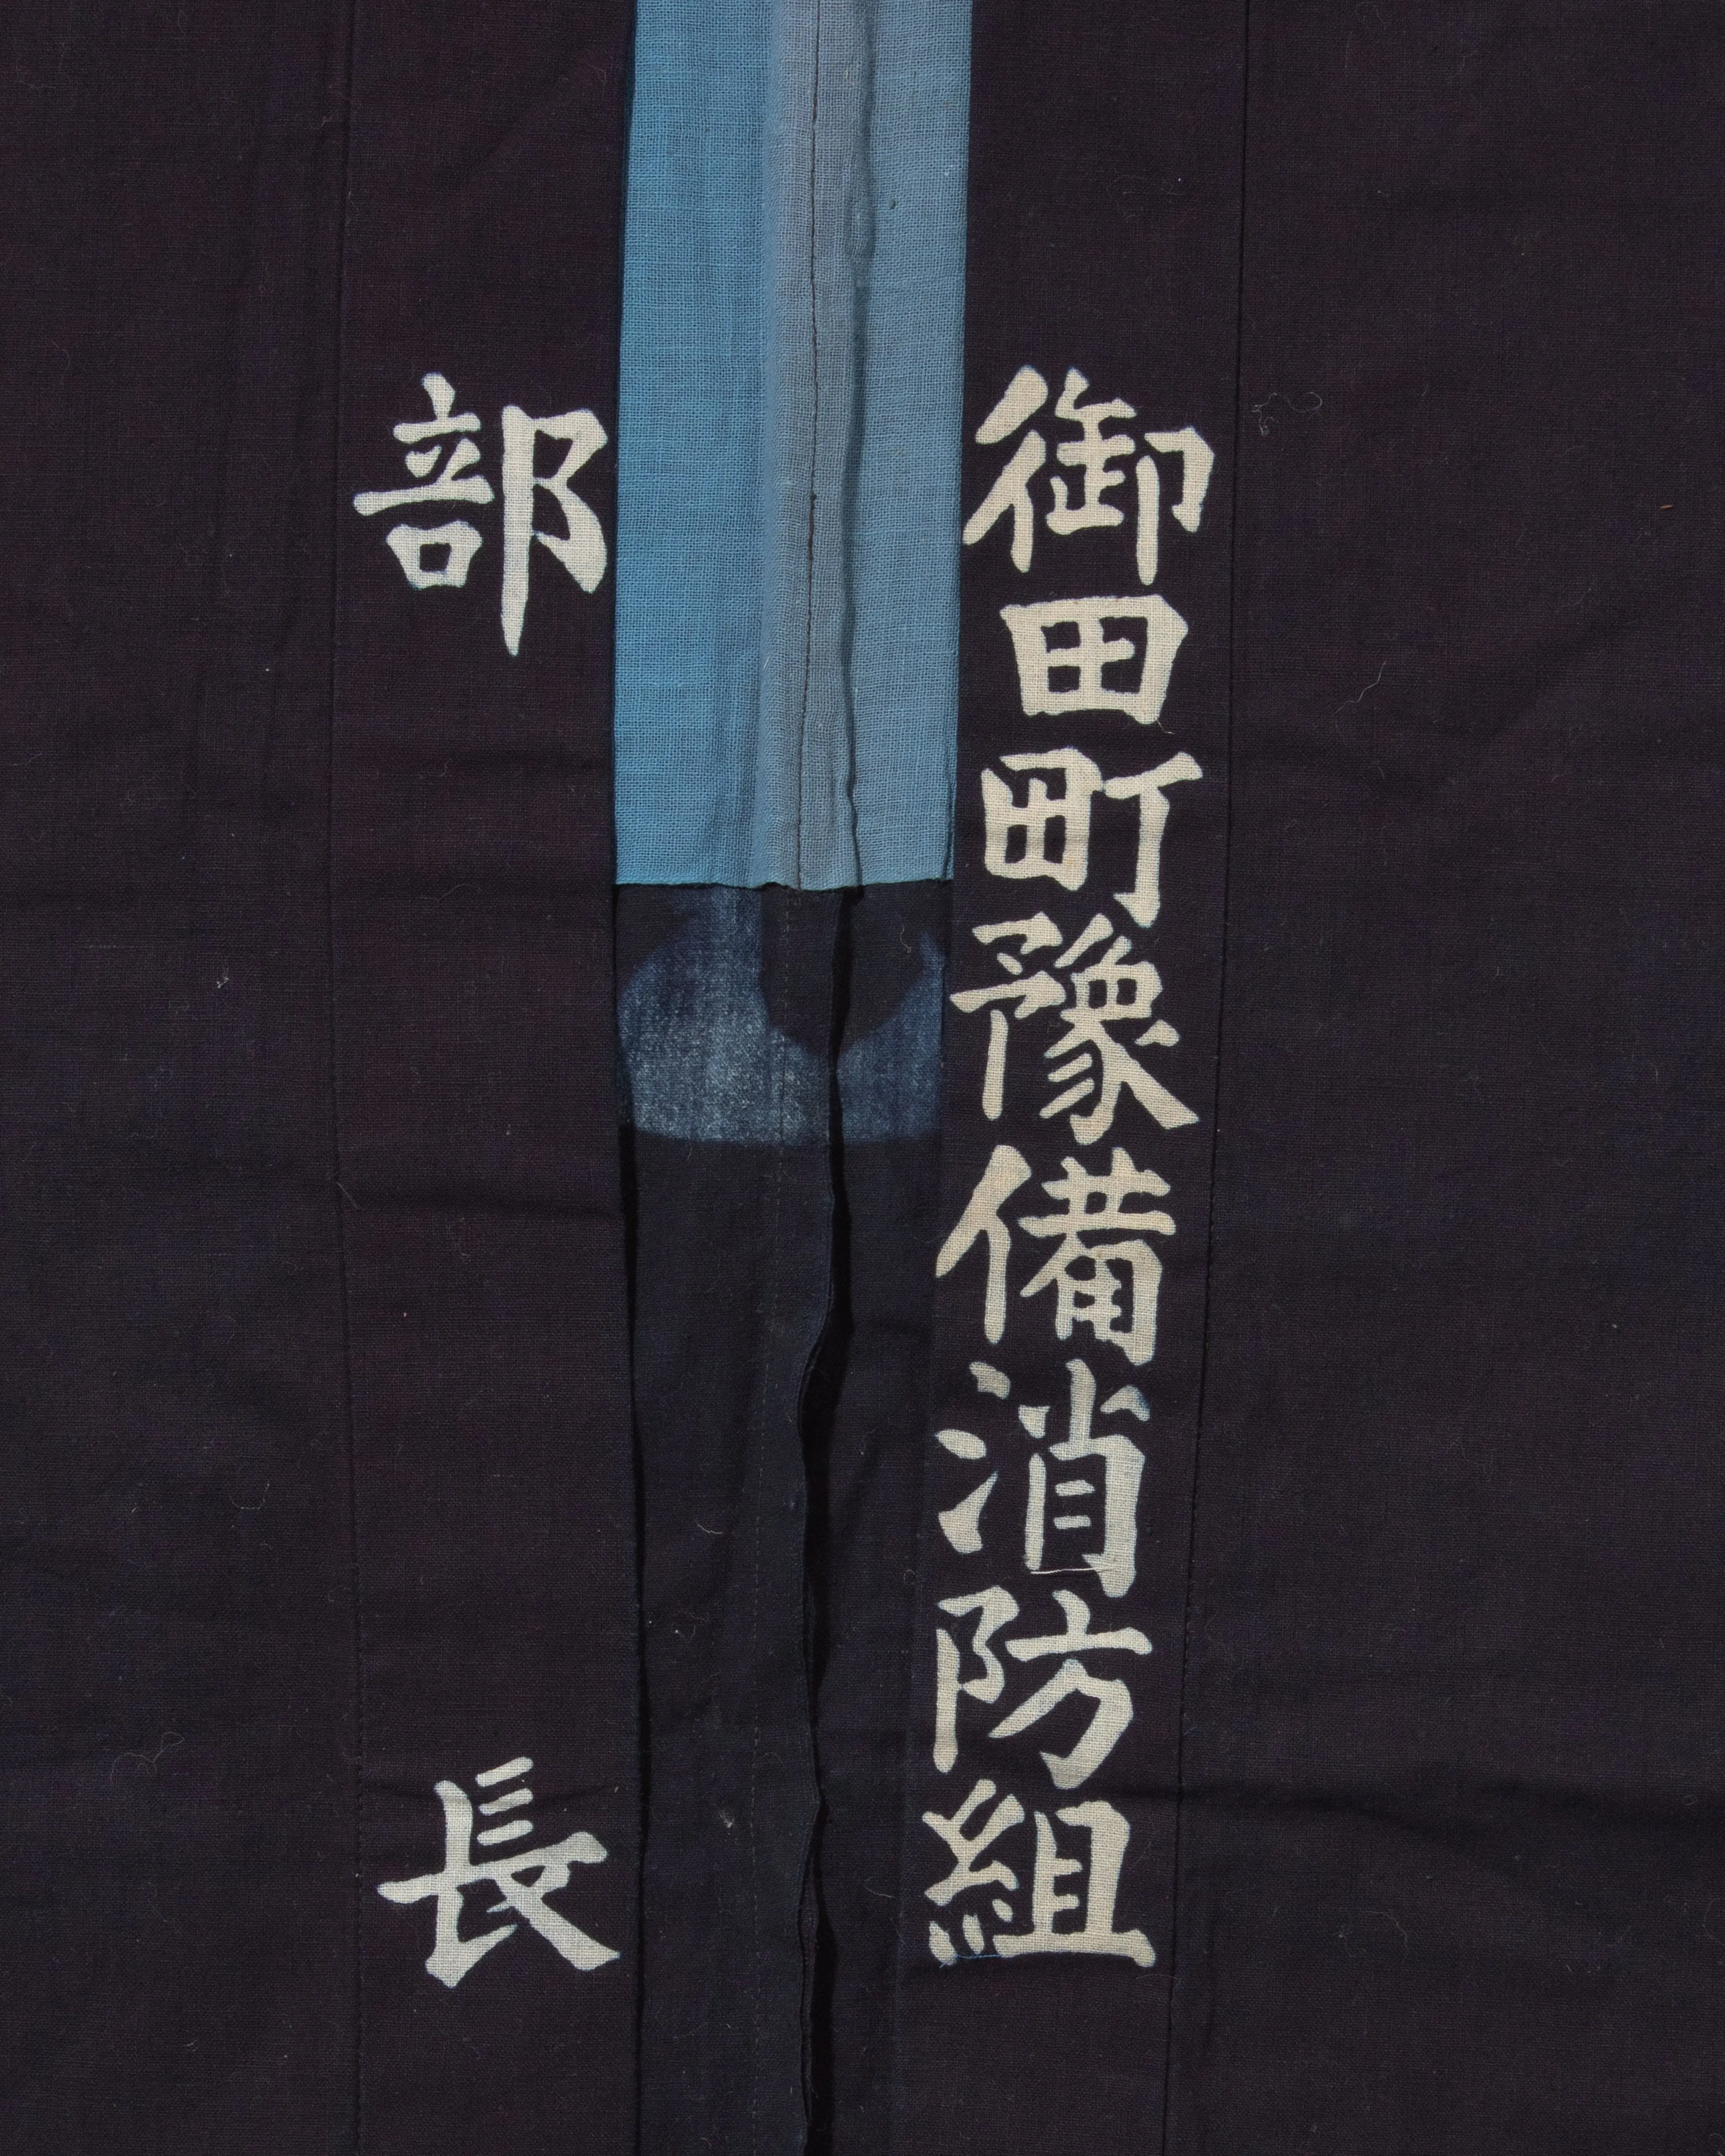 御田町豫備消防組
部長